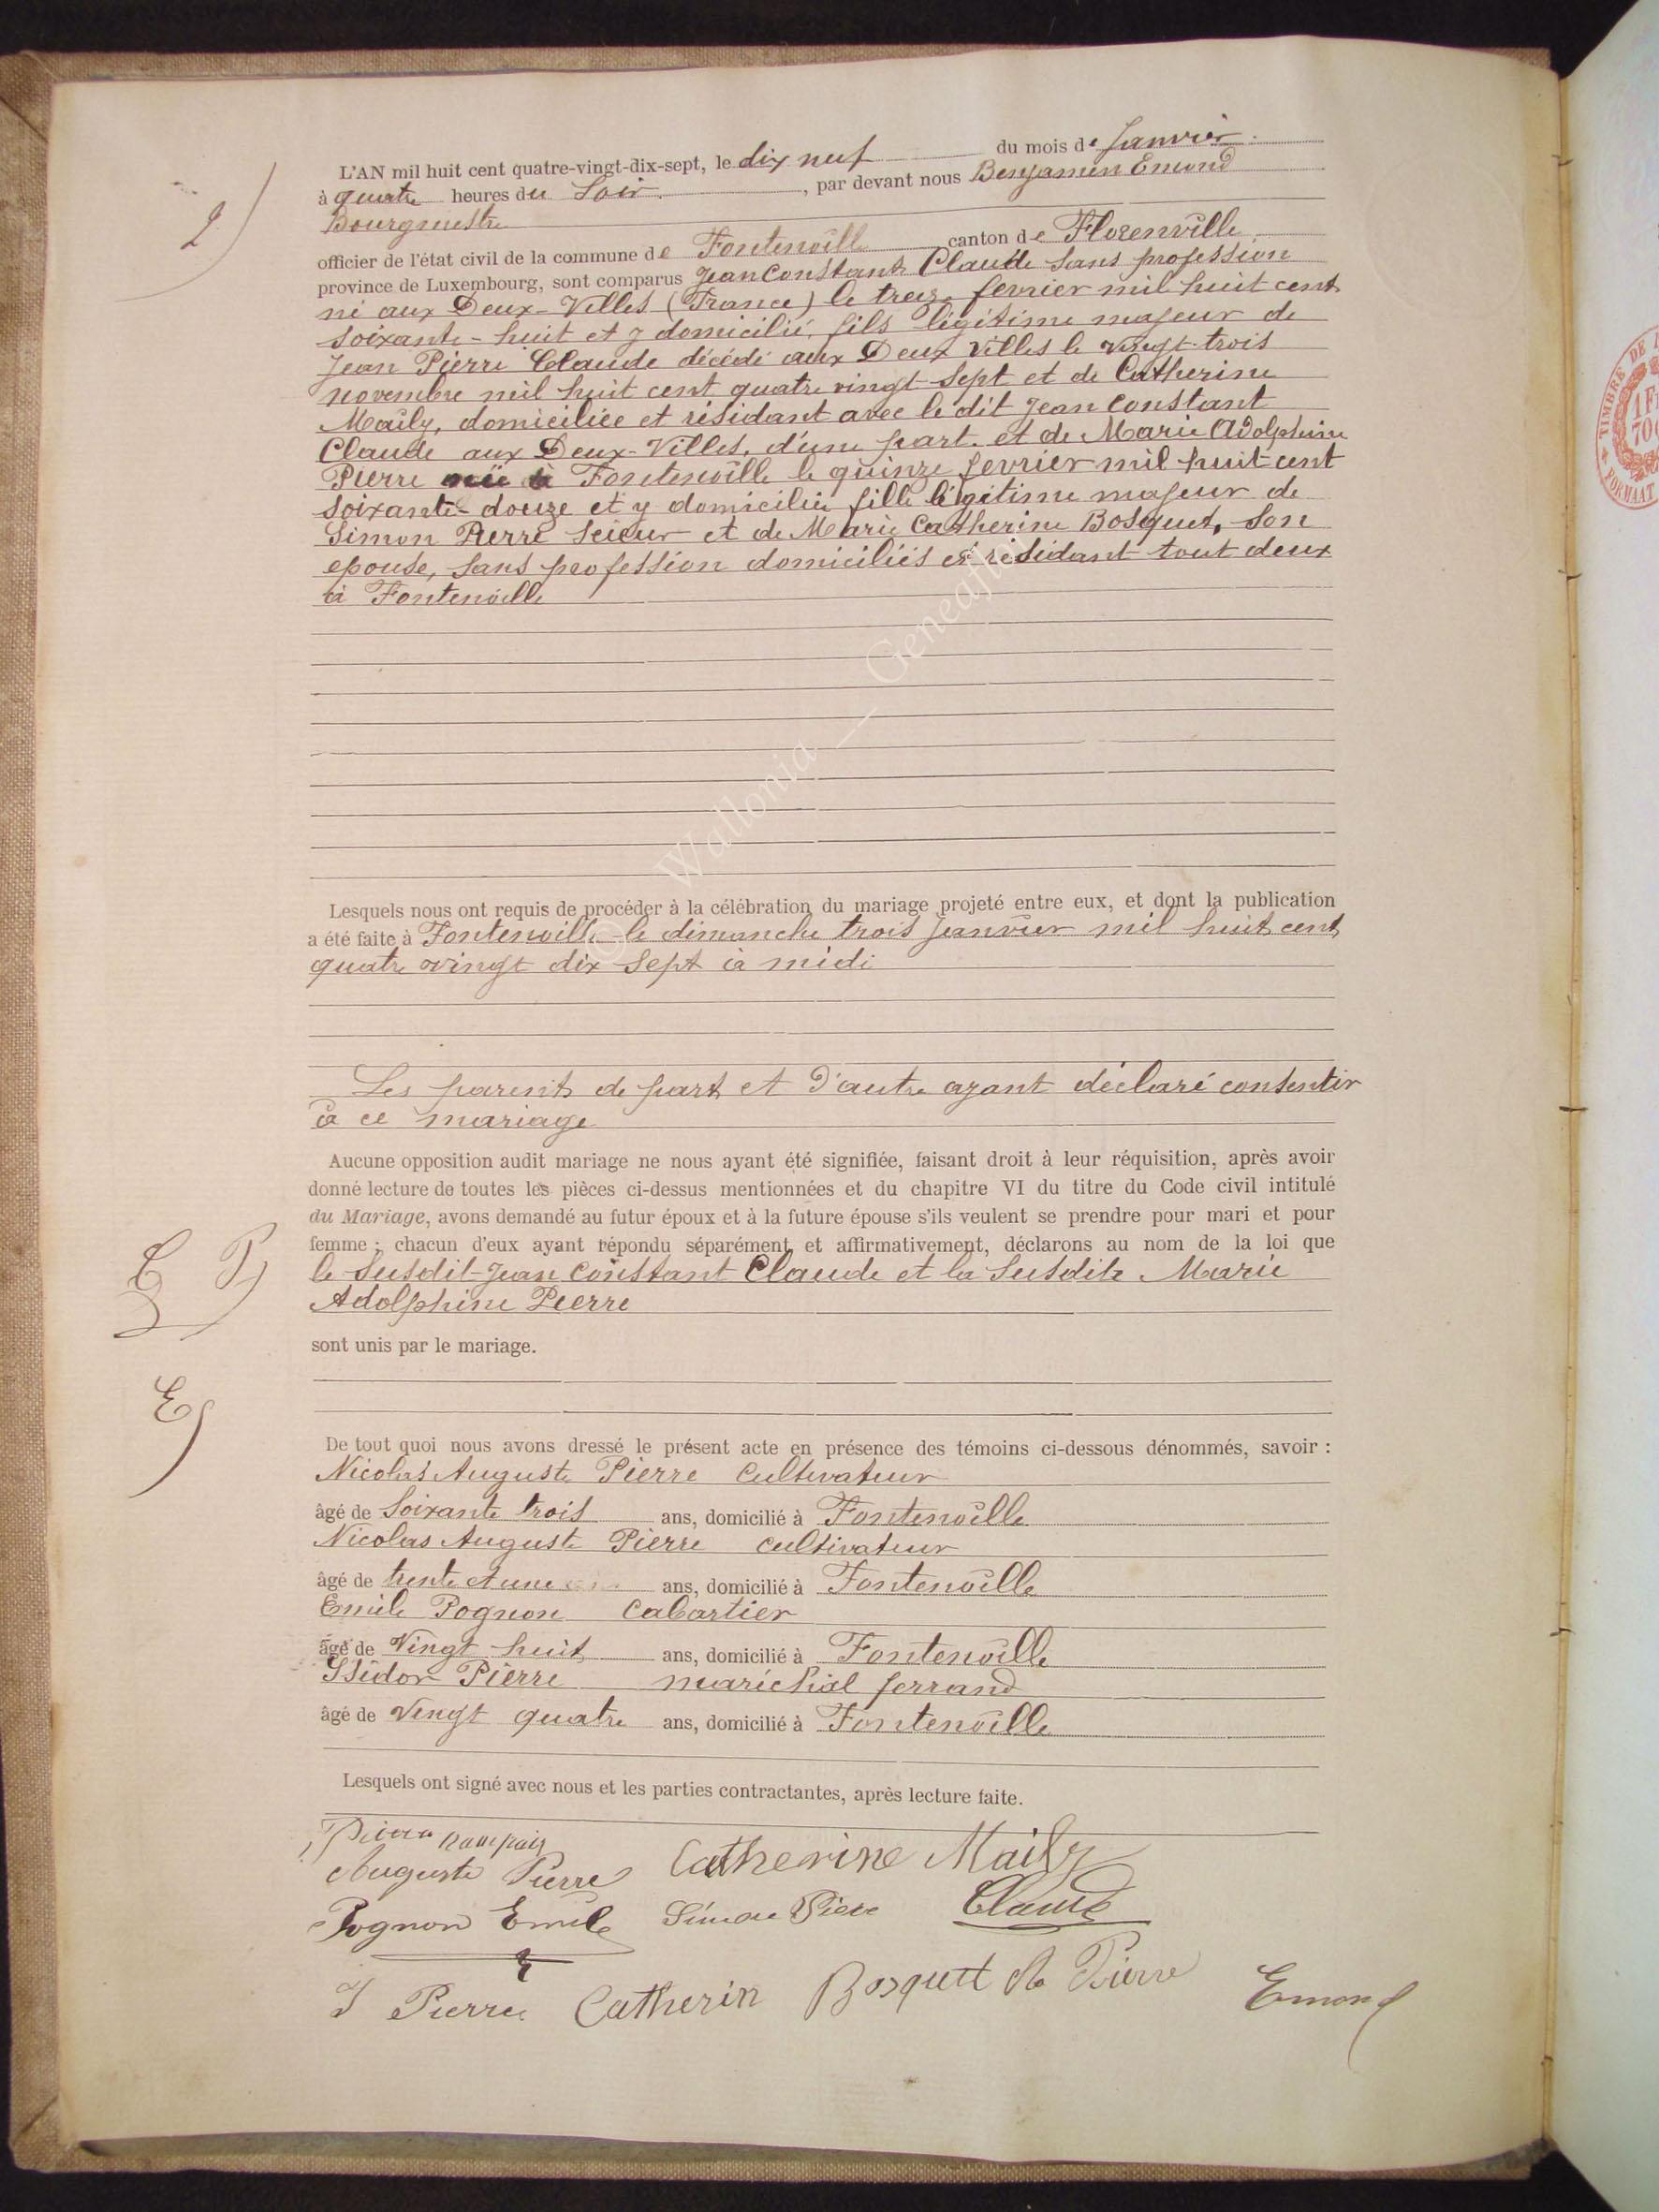 2
L'AN mil huit cent quatre-vingt-dix-sept, le dix neuf du mois de Janvier
à quatre heures du Soir, par devant nous Benjamin Emond
Bourgmestre
officier de l'état civil de la commune de Fontenoille canton de Florenville
province de Luxembourg, sont comparus Jean Constant Claude sans profession
né aux Deux-Villes (France) le treize fevrier mil huit cent
soixante-huit et y domicilié, fils légitime majeur de
Jean Pierre Claude décédé aux Deux Villes le vingt-trois
novembre mil huit cent quatre vingt sept et de Catherine
Maily, domiciliée et résidant avec le dit Jean Constant
Claude aux Deux-Villes, d'une part. et de Marie Adolphine
Pierre née à Fontenoille le quinze fevrier mil huit cent
soixante-douze et y domicilié fille légitime majeur de
Simon Pierre scieur et de Marie Catherine Bosquet, son
epouse, sans profession domiciliés et résidant tout deux
à Fontenoille
© Wallonia - Geneajfox
Lesquels nous ont requis de procéder à la célébration du mariage projeté entre eux, et dont la publication
a été faite à Fontenoille le dimanche trois Janvier mil huit cent
quatre vingt dix sept à midi
Les parents de part et d'autre ayant déclaré consentir
à ce mariage
Aucune opposition audit mariage ne nous ayant été signifiée, faisant droit à leur réquisition, après avoir
donné lecture de toutes les pièces ci-dessus mentionnées et du chapitre VI du titre du Code civil intitulé
du Mariage, avons demandé au futur époux et à la future épouse s'ils veulent se prendre pour mari et pour
femme ; chacun d'eux ayant répondu séparément et affirmativement, déclarons au nom de la loi que
C P
le susdit Jean Constant Claude et la susdite Marie
Adolphine Pierre
sont unis par le mariage.
E
De tout quoi nous avons dressé le présent acte en présence des témoins ci-dessous dénommés, savoir :
Nicolas Auguste Pierre Cultivateur
âgé de Soixante trois ans, domicilié à Fontenoille
Nicolas Auguste Pierre cultivateur
âgé de trente et une ans, domicilié à Fontenoille
Emile Pognon Cabartier
âgé de Vingt huit ans, domicilié à Fontenoille
Isidor Pierre maréchal ferrand
âgé de Vingt quatre ans, domicilié à Fontenoille
Lesquels ont signé avec nous et les parties contractantes, après lecture faite.
Pierre
Auguste Pierre Catherine Maily
Pognon Emile Simon Piere Claude
J Pierre Catherin Bosquett Pierre Emond
TIMBRE DE
1 F
70
FORMAAT